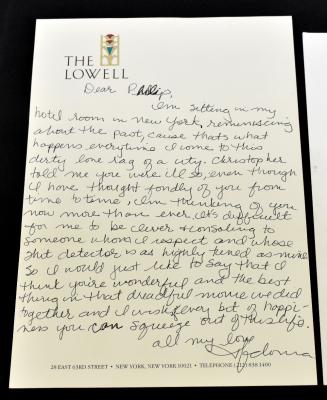 THE
LOWELL
Dear Philip,
I'm sitting in my
hotel room in new York, reminiscing
about the past, cause thats what
happens everytime I come to this
dirty love rag of a city. Christopher
told me you were ill so, even though
I have thought fondly of you from
time to time, I'm thinking of you
now more than ever. It's difficult
for me to be clever & consoling to
someone whom I respect and whose
shit detector is as highly tuned as mine
so I would just like to say that I
think you're wonderful and the best
thing in that dreadful movie we did
together and I wish every bit of happi-
ness you can squeeze out of this life.
all my love
Madonna
28 EAST 63RD STREET • NEW YORK, NEW YORK 10021 • TELEPHONE (212) 838 1400